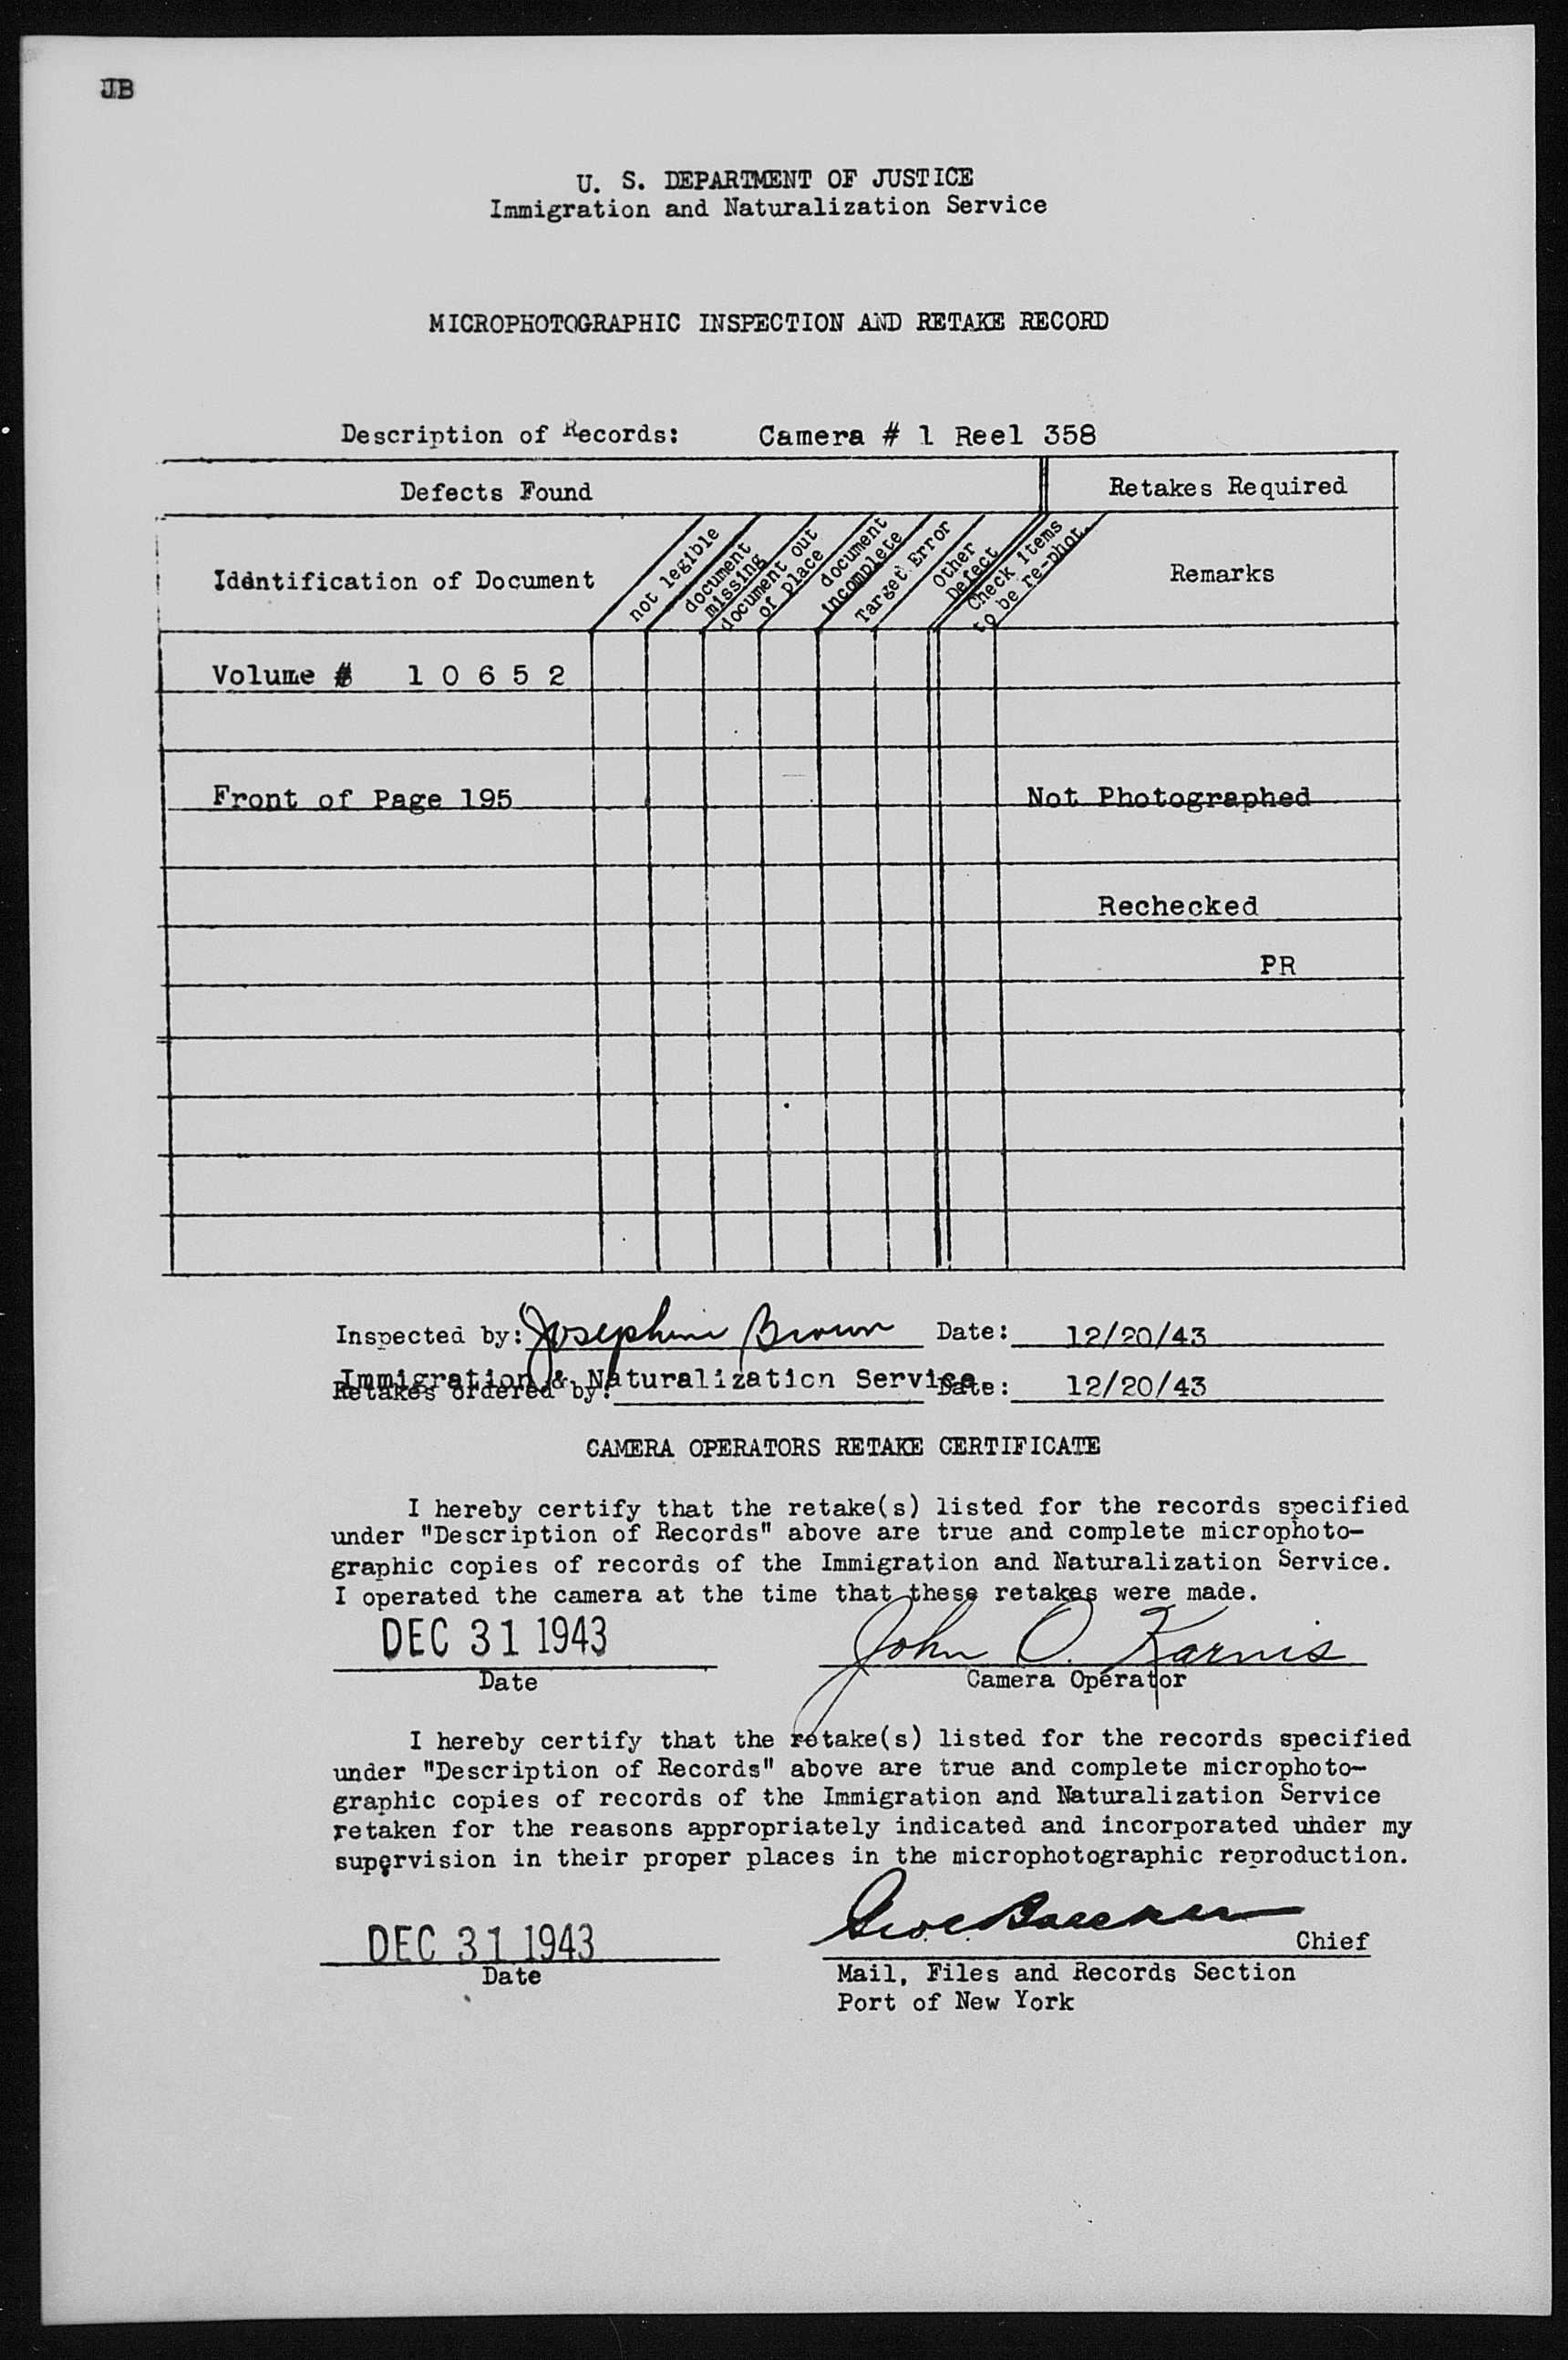 JB
U. S. DEPARTMENT OF JUSTICE
Immigration and Naturalization Service
MICROPHOTOGRAPHIC INSPECTION AND RETAKE RECORD
Description of Records: Camera # 1 Reel 358
Defects Found Retakes Required
Identification of Document
not legible
document
missing
document out
of place
document
incomplete
Target Error
Other
Defect
Check items
to be re-phot.
Remarks
Volume # 1 0 6 5 2
Front of Page 195 Not Photographed
Rechecked
PR
Inspected by: Josephine Brown Date: 12/20/43
Immigration & Naturalization Service
Retakes ordered by: Date: 12/20/43
CAMERA OPERATORS RETAKE CERTIFICATE
I hereby certify that the retake(s) listed for the records specified
under "Description of Records" above are true and complete microphoto-
graphic copies of records of the Immigration and Naturalization Service.
I operated the camera at the time that these retakes were made.
DEC 31 1943 John O. Karnis
Date Camera Operator
I hereby certify that the retake(s) listed for the records specified
under "Description of Records" above are true and complete microphoto-
graphic copies of records of the Immigration and Naturalization Service
retaken for the reasons appropriately indicated and incorporated under my
supervision in their proper places in the microphotographic reproduction.
DEC 31 1943 Chief
Date Mail, Files and Records Section
Port of New York